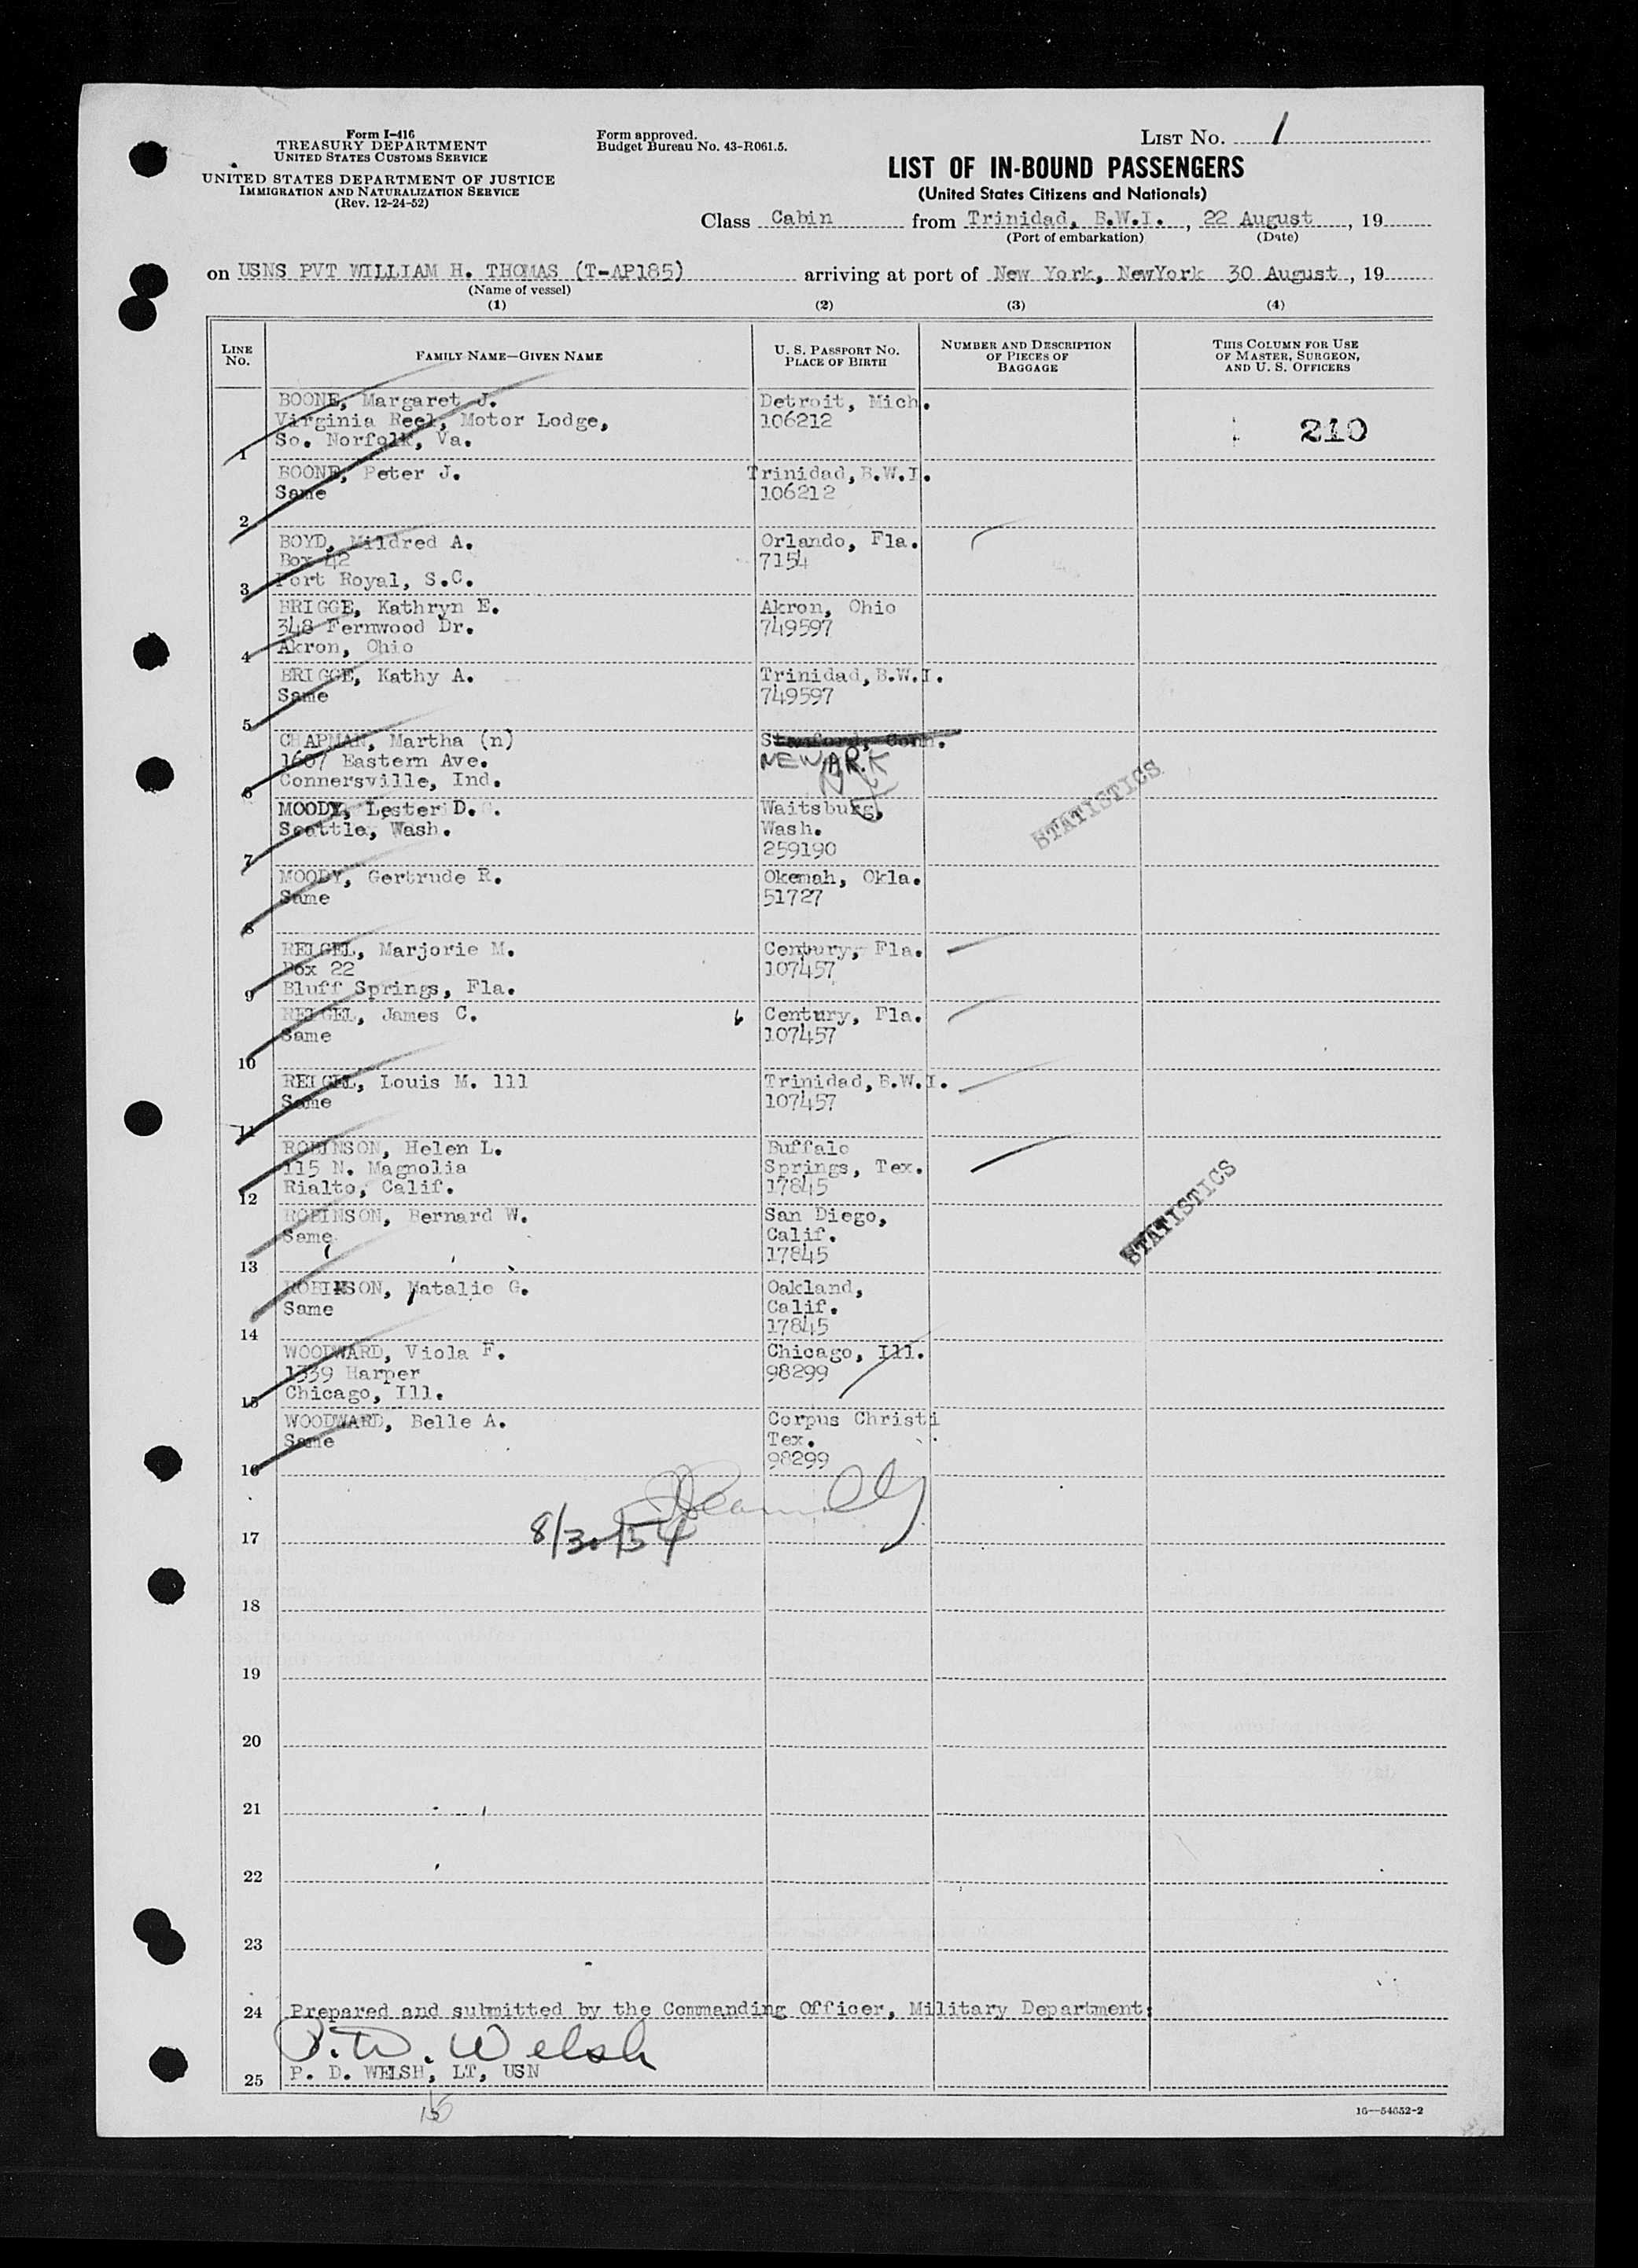 Form I-416
TREASURY DEPARTMENT
UNITED STATES CUSTOMS SERVICE
UNITED STATES DEPARTMENT OF JUSTICE
IMMIGRATION AND NATURALIZATION SERVICE
(Rev. 12-24-52)
Form approved.
Budget Bureau No. 43-R061.5.
LIST NO. 1
LIST OF IN-BOUND PASSENGERS
(United States Citizens and Nationals)
Class Cabin from Trinidad, B.W.I., 22 August, 19
(Port of embarkation) (Date)
on USNS PVT WILLIAM H. THOMAS (T-AP185) arriving at port of New York, NewYork 30 August, 19
(Name of vessel)
(1) (2) (3) (4)
LINE NO.
FAMILY NAME—GIVEN NAME
U. S. PASSPORT NO.
PLACE OF BIRTH
NUMBER AND DESCRIPTION
OF PIECES OF
BAGGAGE
THIS COLUMN FOR USE
OF MASTER, SURGEON,
AND U. S. OFFICERS
BOONE, Margaret J. Detroit, Mich.
Virginia Reel, Motor Lodge, 106212 210
1 So. Norfolk, Va.
BOONE, Peter J. Trinidad, B.W.I.
Same 106212
2
BOYD, Mildred A. Orlando, Fla.
Box 42 7154
3 Port Royal, S.C.
BRIGGE, Kathryn E. Akron, Ohio
348 Fernwood Dr. 749597
4 Akron, Ohio
BRIGGE, Kathy A. Trinidad, B.W.I.
Same 749597
5
CHAPMAN, Martha (n) Stamford, Conn.
1607 Eastern Ave. NEWARK
6 Connersville, Ind.
MOODY, Lester D. Waitsburg,
Seattle, Wash. Wash.
7 259190
STATISTICS
MOODY, Gertrude R. Okemah, Okla.
Same 51727
8
REIGEL, Marjorie M. Century, Fla.
Box 22 107457
9 Bluff Springs, Fla.
REIGEL, James C. 6 Century, Fla.
Same 107457
10
REIGEL, Louis M. 111 Trinidad, B.W.I.
Same 107457
11
ROBINSON, Helen L. Buffalo
115 N. Magnolia Springs, Tex.
12 Rialto, Calif. 17845
ROBINSON, Bernard W. San Diego,
Same Calif.
13 17845
STATISTICS
ROBINSON, Natalie G. Oakland,
Same Calif.
14 17845
WOODWARD, Viola F. Chicago, Ill.
1339 Harper 98299
15 Chicago, Ill.
WOODWARD, Belle A. Corpus Christi
Same Tex.
16 98299
17 8/30/54
18
19
20
21
22
23
24 Prepared and submitted by the Commanding Officer, Military Department:
P. D. Welsh
25 P. D. WELSH, LT, USN
16—54652-2